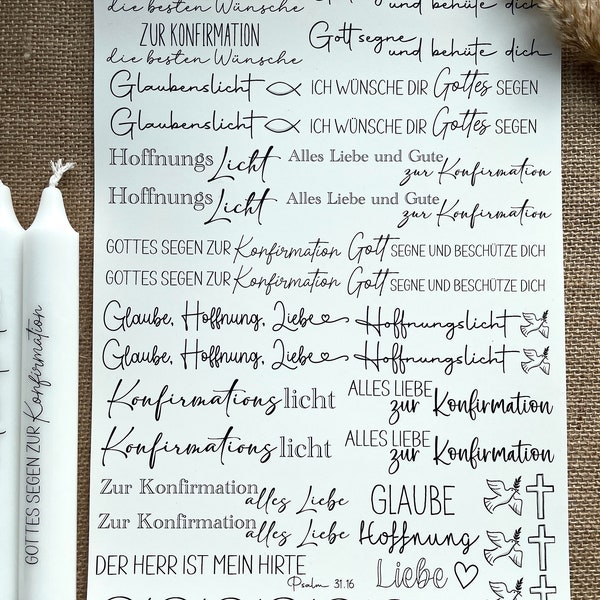 die besten Wünsche und behüte dich
ZUR KONFIRMATION Gott segne
die besten Wünsche und behüte dich
Glaubenslicht ICH WÜNSCHE DIR Gottes SEGEN
Glaubenslicht ICH WÜNSCHE DIR Gottes SEGEN
HoffnungsLicht Alles Liebe und Gute
zur Konfirmation
HoffnungsLicht Alles Liebe und Gute
zur Konfirmation
GOTTES SEGEN ZUR Konfirmation Gott SEGNE UND BESCHÜTZE DICH
GOTTES SEGEN ZUR Konfirmation Gott SEGNE UND BESCHÜTZE DICH
Glaube, Hoffnung, Liebe Hoffnungslicht
Glaube, Hoffnung, Liebe Hoffnungslicht
Konfirmationslicht ALLES LIEBE
zur Konfirmation
Konfirmationslicht ALLES LIEBE
zur Konfirmation
Zur Konfirmation alles Liebe GLAUBE
Zur Konfirmation alles Liebe Hoffnung
DER HERR IST MEIN HIRTE
Psalm 31.16 Liebe
GOTTES SEGEN ZUR Konfirmation